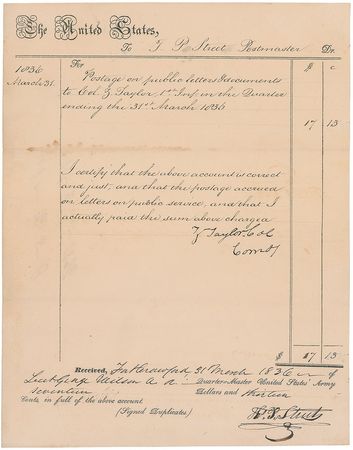 The United States,
To J. P. Street Postmaster Dr.
1836 For $ c
March 31. Postage on public letters & documents
to Col. Z. Taylor 1st Inf. in the Quarter
ending the 31st March 1836
17 13
I certify that the above account is correct
and just, and that the postage accrued
on letters on public service, and that I
actually paid the sum above charged
Z. Taylor Col
Comdg
$ 17 13
Received, Fort Crawford 31st March 1836 of
Lieut Quarter-Master United States' Army
seventeen Dollars and thirteen
Cents, in full of the above account.
(Signed Duplicates)
J. P. Street